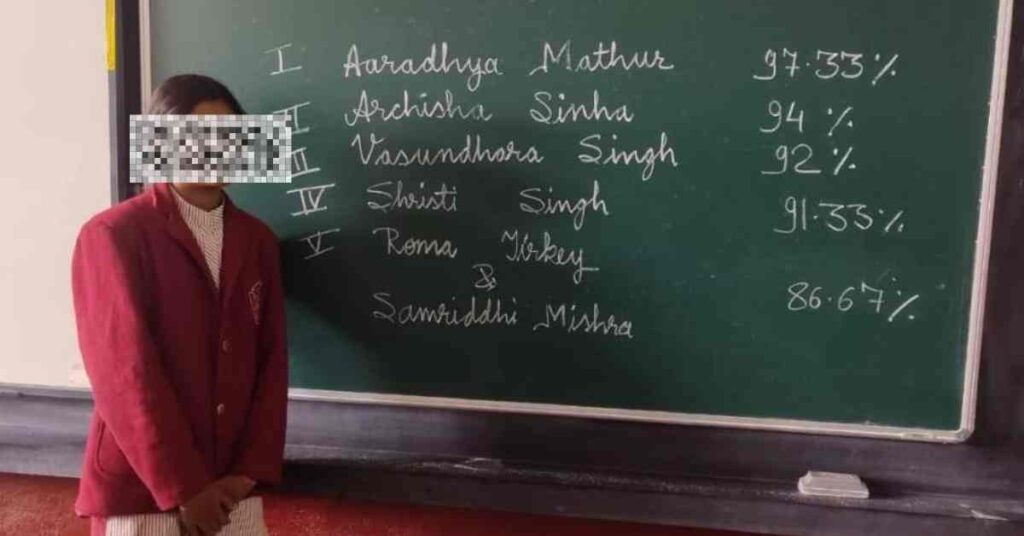 I Aaradhya Mathur 97.33%
II Archisha Sinha 94 %
III Vasundhara Singh 92 %
IV Shristi Singh 91.33%
V Roma Tirkey
&
Samriddhi Mishra 86.67%